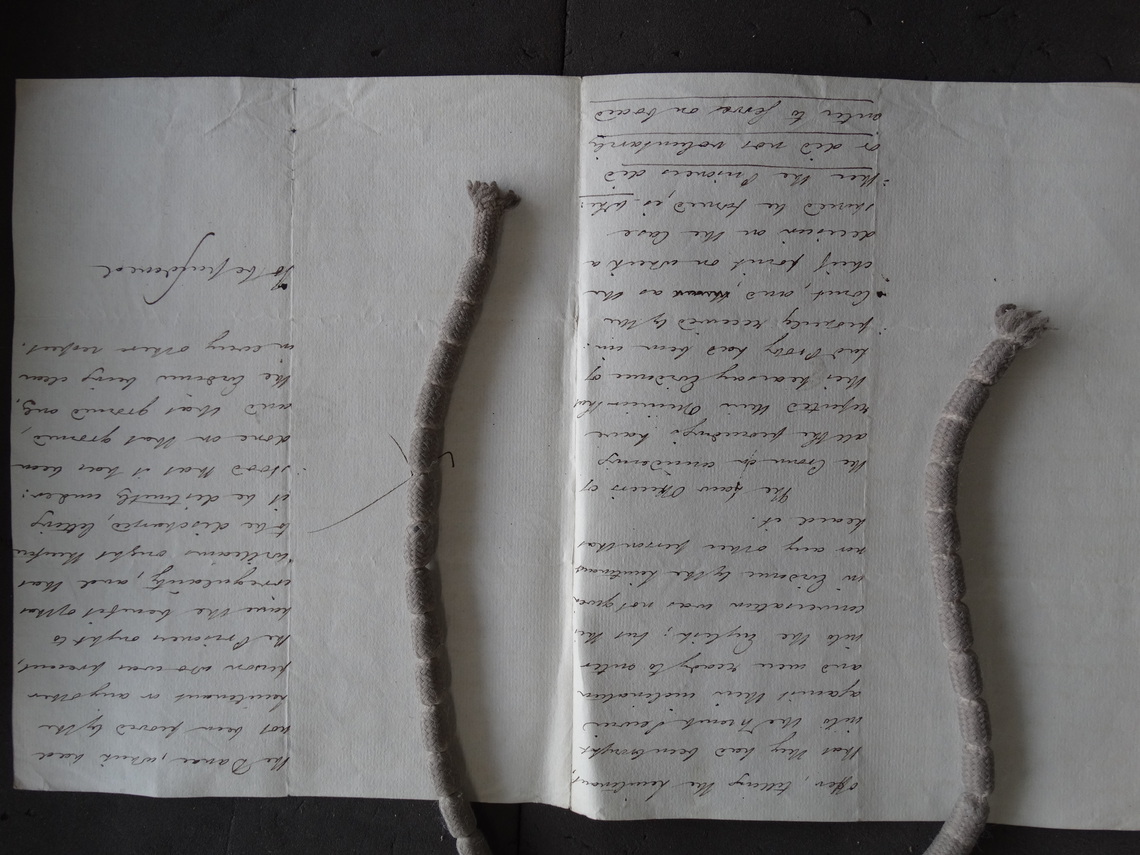 offer, telling the Lieutenant,
that they had been brought
into the French Service
against their inclination
and were ready to enter
into the English; but this
conversation was not given
in Evidence by the Lieutenant
nor any other person that
heard it.
The Law Officers of
the Crown on considering
all the proceedings have
reported their Opinion that
this hearsay Evidence of
had been im:
:properly received by the
Court, and, as the
chief point on which a
decision on the Case
should be formed, is whe:
:ther the Prisoners did
or did not voluntarily
enter to serve on board
the Dance, which had
not been proved by the
Lieutenant or any other
person who was present,
the Prisoners ought to
have the benefit of that
irregularity, and that
Williams ought therefore
to be discharged, letting
it be distinctly under:
:stood that it has been
done on that ground,
and that ground only,
the Evidence being clear
in every other respect.
To be pardoned